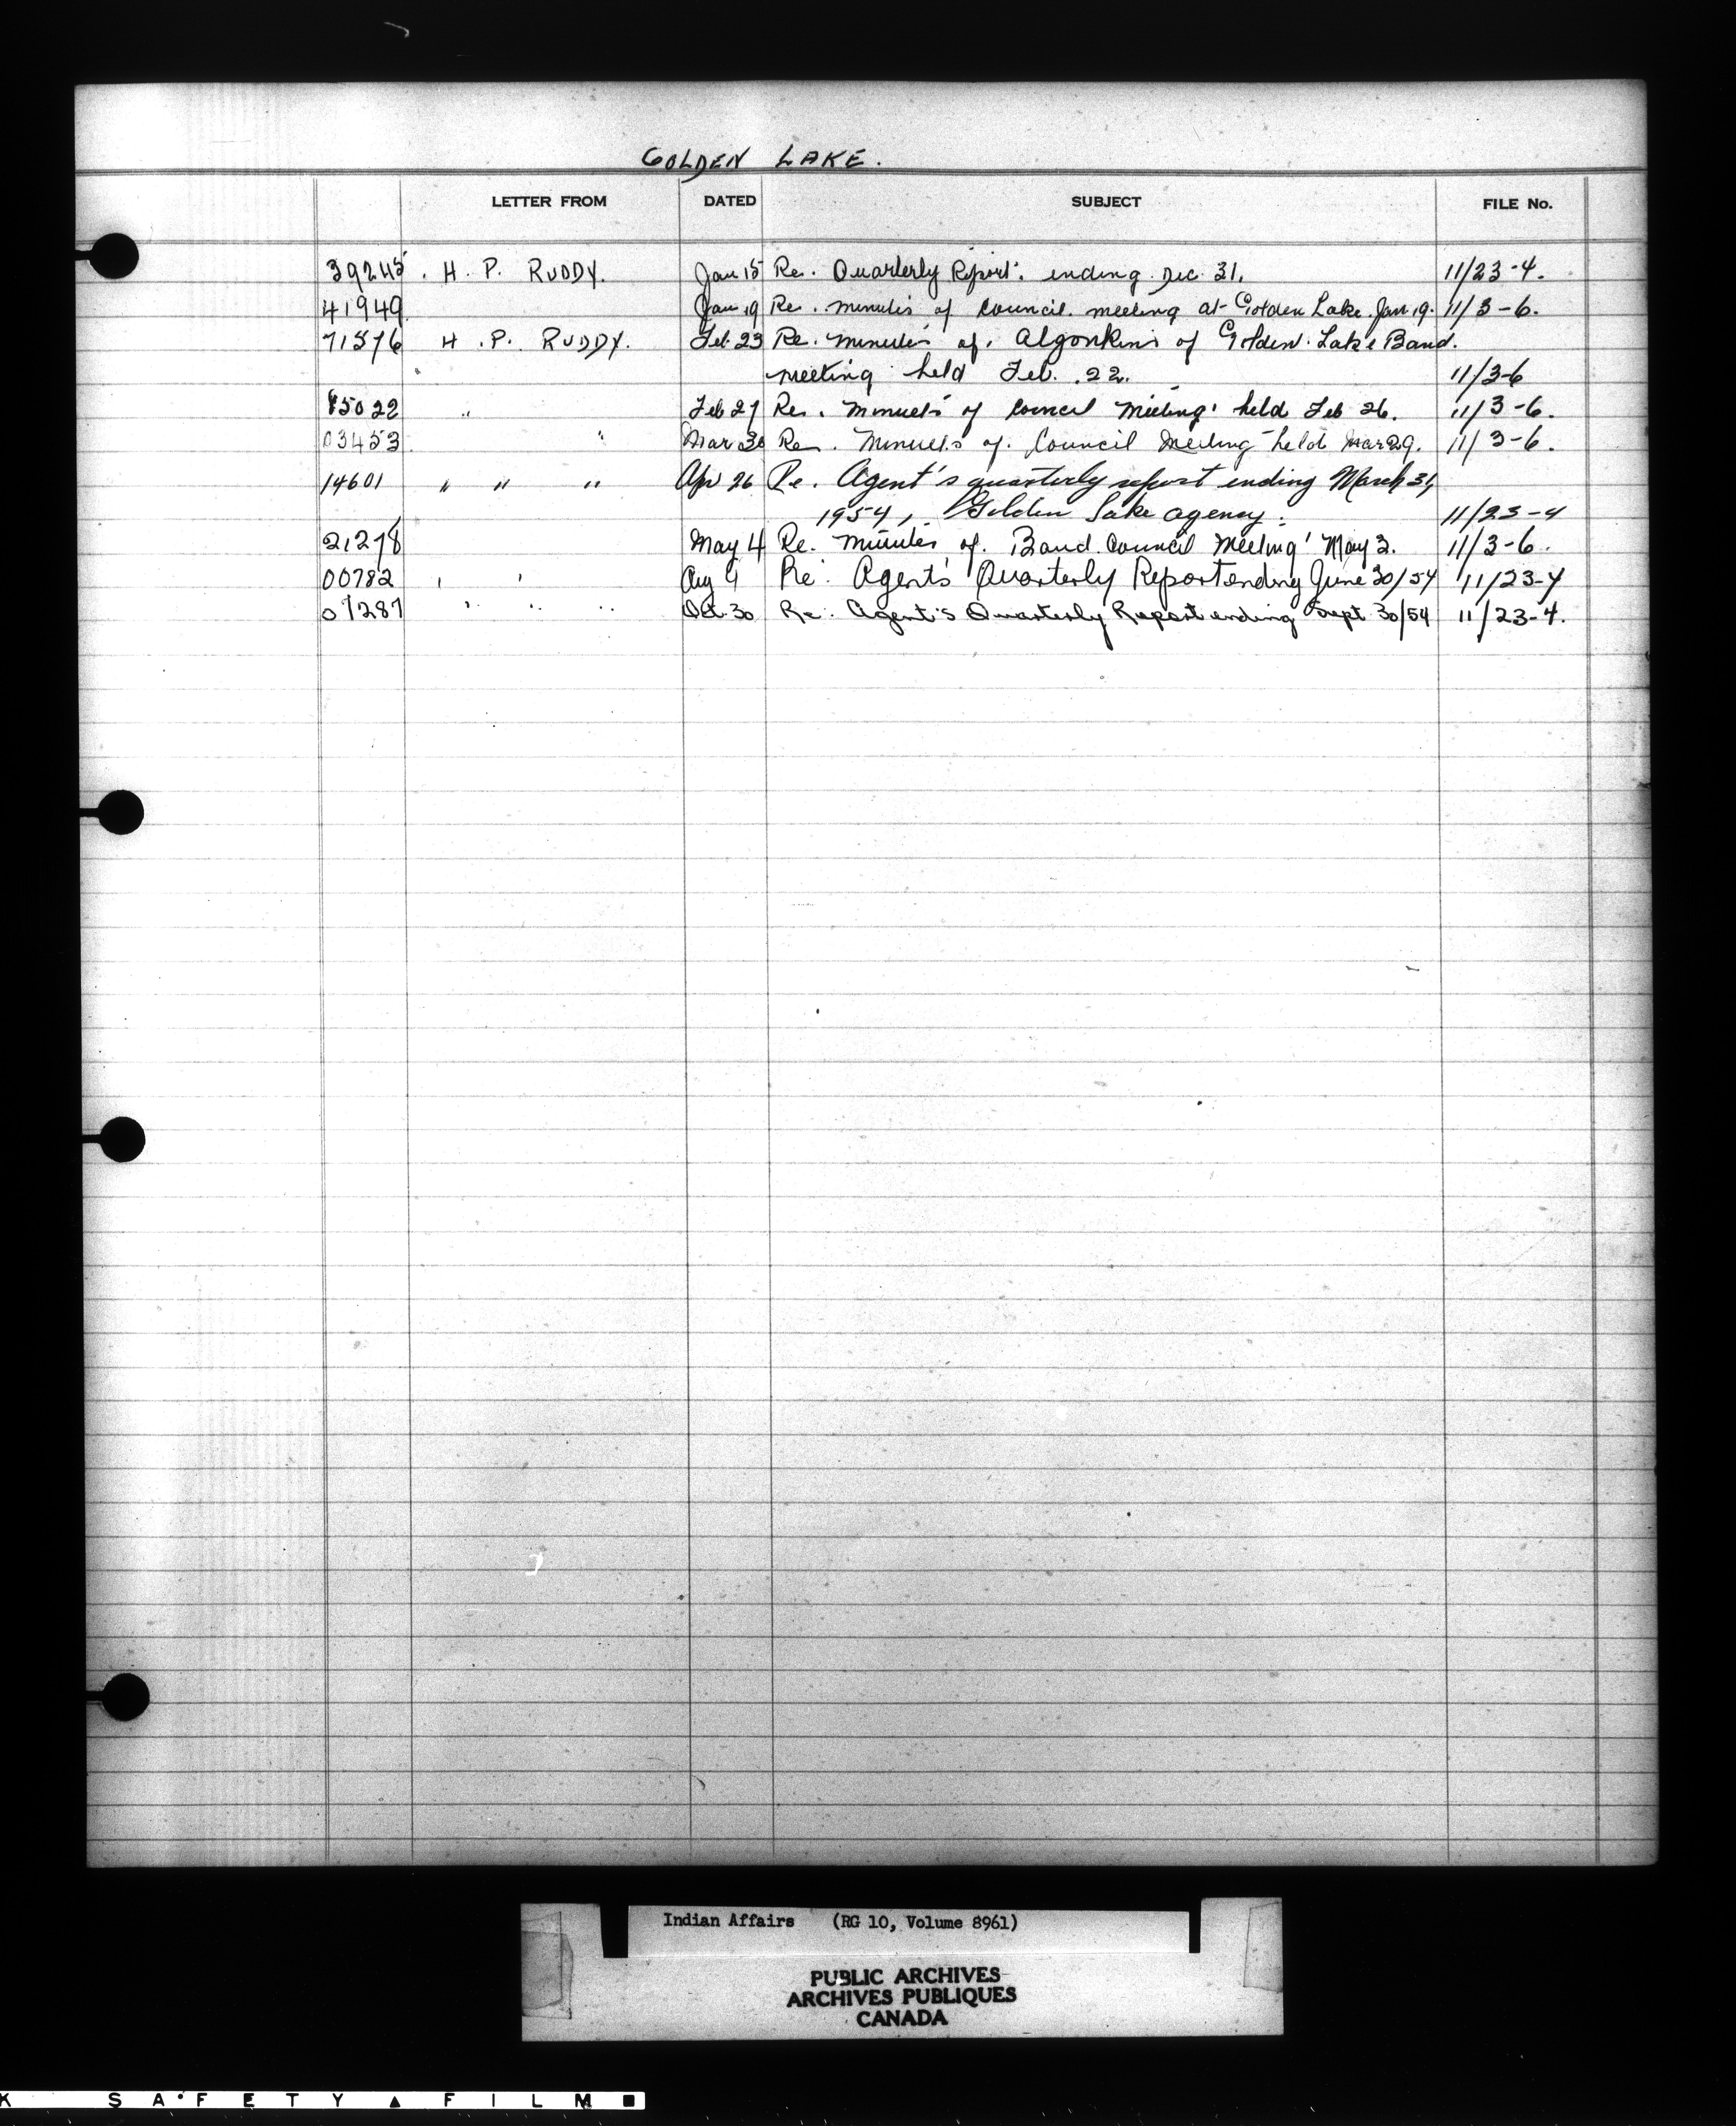 GOLDEN LAKE.
LETTER FROM DATED SUBJECT FILE No.
39245 . H. P. RUDDY. Jan 15 Re. Quarterly Report. ending Dec 31. 11/23-4.
41949 Jan 19 Re. minutes of Council meeting at Golden Lake Jan 19. 11/3-6.
71576 H. P. RUDDY. Feb 23 Re. minutes of. Algonkins of Golden Lake Band.
meeting held Feb. 22. 11/3-6
85022 " Feb 27 Re. Minutes of Council Meeting held Feb 26. 11/3-6.
03453 " Mar 30 Re. Minutes of Council Meeting held Mar 29. 11/3-6.
14601 " " " Apr 26 Re. Agent's quarterly report ending March 31,
1954, Golden Lake agency. 11/23-4
21278 May 4 Re. Minutes of. Band Council Meeting May 3. 11/3-6.
00782 " " Aug 9 Re. Agent's Quarterly Report ending June 30/54 11/23-4
07287 " " " Oct. 30 Re. Agent's Quarterly Report ending Sept 30/54 11/23-4.
Indian Affairs (RG 10, Volume 8961)
PUBLIC ARCHIVES
ARCHIVES PUBLIQUES
CANADA
K SAFETY ▲ FILM ■